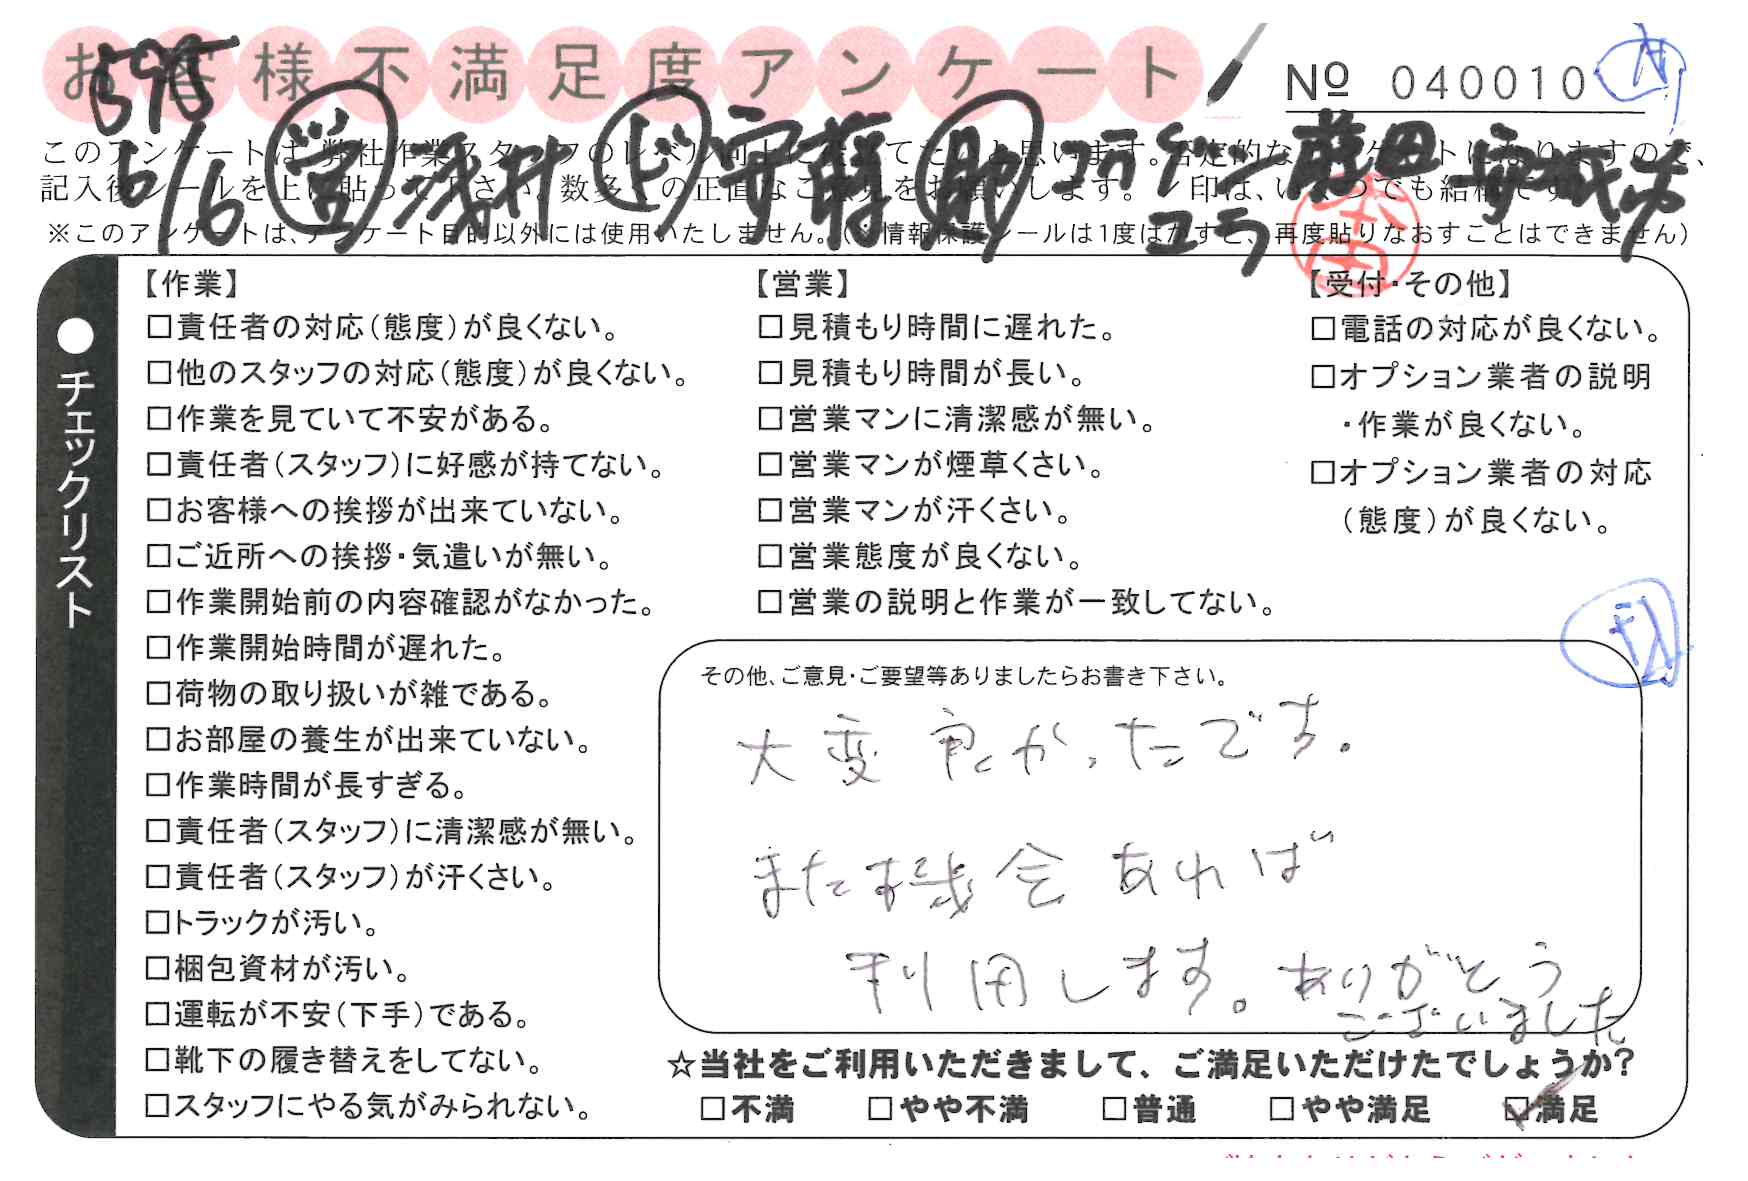 お客様不満足度アンケート
№ 040010
598
6/6 営 浅村 ド 安藤 助
このアンケートは、弊社作業スタッフのレベル向上に
記入後シールを上に貼って下さい。数多くの正直なご意見をお願いします。✓印は、いくつでも結構です
※このアンケートは、アンケート目的以外には使用いたしません。(※情報保護シールは1度はがすと、再度貼りなおすことはできません)
●チェックリスト
【作業】
□責任者の対応(態度)が良くない。
□他のスタッフの対応(態度)が良くない。
□作業を見ていて不安がある。
□責任者(スタッフ)に好感が持てない。
□お客様への挨拶が出来ていない。
□ご近所への挨拶・気遣いが無い。
□作業開始前の内容確認がなかった。
□作業開始時間が遅れた。
□荷物の取り扱いが雑である。
□お部屋の養生が出来ていない。
□作業時間が長すぎる。
□責任者(スタッフ)に清潔感が無い。
□責任者(スタッフ)が汗くさい。
□トラックが汚い。
□梱包資材が汚い。
□運転が不安(下手)である。
□靴下の履き替えをしてない。
□スタッフにやる気がみられない。
【営業】
□見積もり時間に遅れた。
□見積もり時間が長い。
□営業マンに清潔感が無い。
□営業マンが煙草くさい。
□営業マンが汗くさい。
□営業態度が良くない。
□営業の説明と作業が一致してない。
【受付・その他】
□電話の対応が良くない。
□オプション業者の説明
・作業が良くない。
□オプション業者の対応
(態度)が良くない。
その他、ご意見・ご要望等ありましたらお書き下さい。
大変良かったです。
また機会あれば
利用します。ありがとう
ございました
☆当社をご利用いただきまして、ご満足いただけたでしょうか?
□不満 □やや不満 □普通 □やや満足 ☑満足